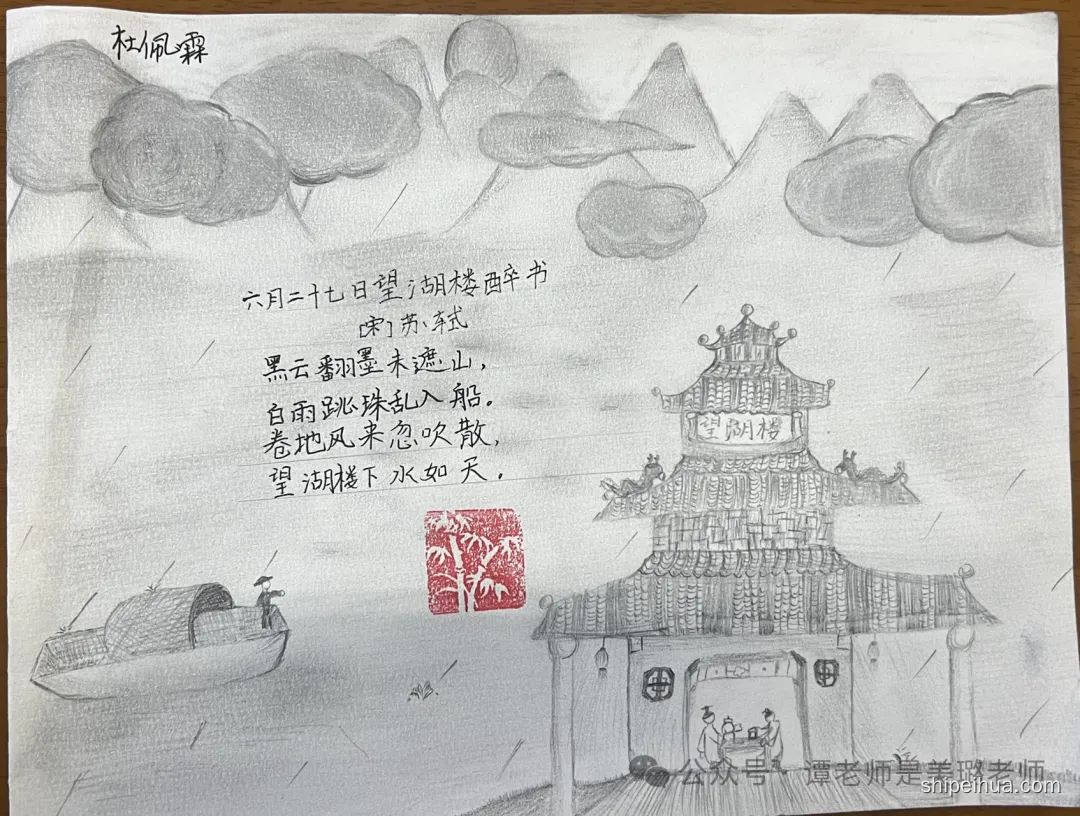 杜佩霖
六月二十七日望湖楼醉书
[宋]苏轼
黑云翻墨未遮山，
白雨跳珠乱入船。
卷地风来忽吹散，
望湖楼下水如天。
望湖楼
公众号 谭老师是美璐老师
shipeihua.com